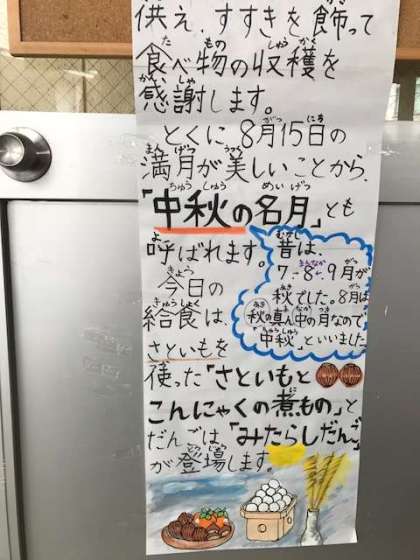 供え、すすきを飾って
食べ物の収穫を
感謝します。
とくに、8月15日の
満月が美しいことから、
「中秋の名月」とも
呼ばれます。
昔は、
7-8-9月が
秋でした。8月は
秋の真ん中の月なので
「中秋」といいました
今日の
給食は、
さといもを
使った「さといもと
こんにゃくの煮もの」と
だんごは、「みたらしだんご」
が登場します。